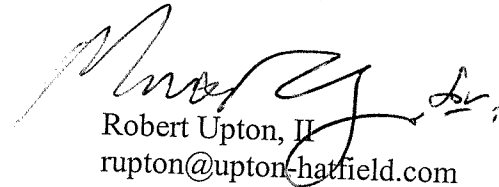 for
Robert Upton, II
rupton@upton-hatfield.com